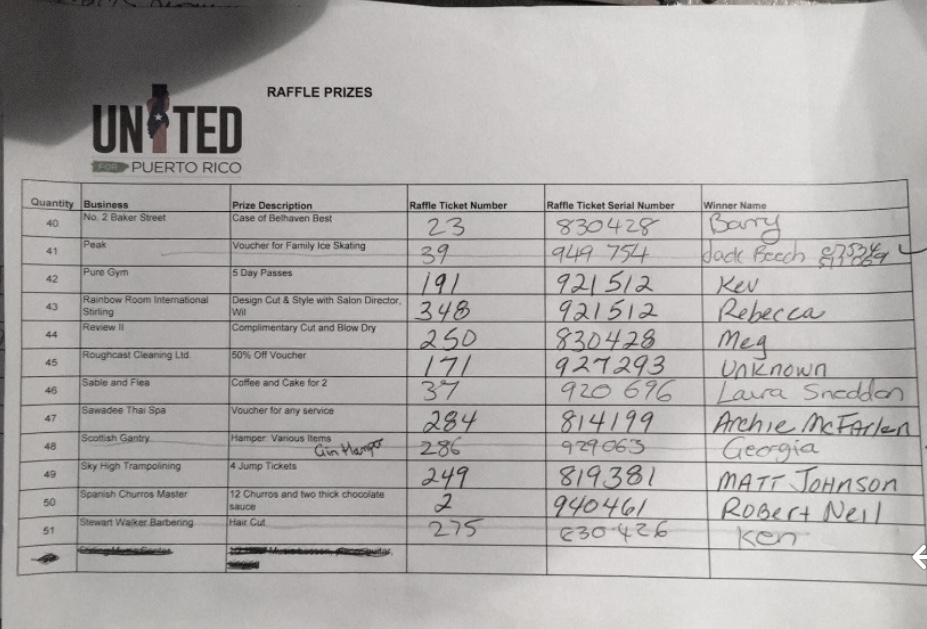 RAFFLE PRIZES
UNITED
FOR PUERTO RICO
Quantity Business Prize Description Raffle Ticket Number Raffle Ticket Serial Number Winner Name
40 No. 2 Baker Street Case of Belhaven Best 23 830428 Barry
41 Peak Voucher for Family Ice Skating 39 949 754 Jack Beech
42 Pure Gym 5 Day Passes 191 921512 Kev
43 Rainbow Room International Design Cut & Style with Salon Director, 348 921512 Rebecca
Stirling Wil
44 Review II Complimentary Cut and Blow Dry 250 830428 Meg
45 Roughcast Cleaning Ltd. 50% Off Voucher 171 927293 Unknown
46 Sable and Flea Coffee and Cake for 2 37 920 696 Laura Sneddon
47 Sawadee Thai Spa Voucher for any service 284 814199 Archie McFarlen
48 Scottish Gantry Hamper: Various Items 286 929063 Georgia
Gin Hamper
49 Sky High Trampolining 4 Jump Tickets 249 819381 MATT JOHNSON
50 Spanish Churros Master 12 Churros and two thick chocolate 2 940461 Robert Neil
sauce
51 Stewart Walker Barbering Hair Cut 275 830426 Ken